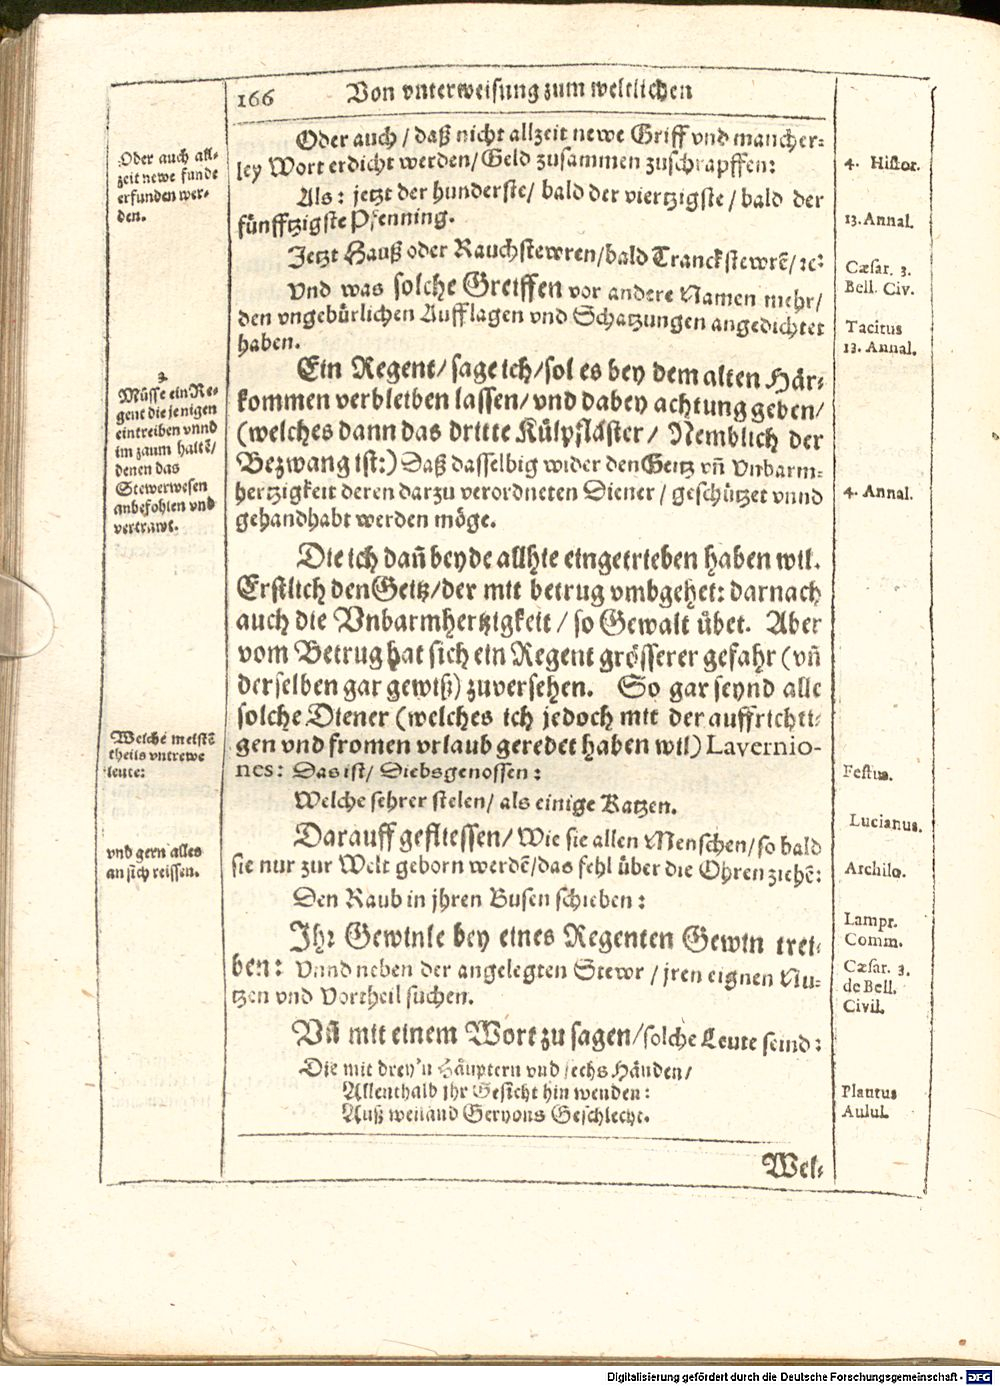 166
Von vnterweisung zum weltlichen
Oder auch all-
zeit newe funde
erfunden wer-
den.
Oder auch / daß nicht allzeit newe Griff vnd mancher-
ley Wort erdicht werden / Geld zusammen zuschrapffen:
4. Histor.
Als: jetzt der hunderste / bald der viertzigste / bald der
fünfftzigste Pfenning.
13. Annal.
Jetzt Hauß oder Rauchstewren / bald Tranckstewrẽ / ꝛc:
Cæsar. 3.
Bell. Civ.
Vnd was solche Greiffen vor andere Namen mehr /
den vngebürlichen Aufflagen vnd Schatzungen angedichtet
haben.
Tacitus
13. Annal.
3.
Müsse ein Re-
gent die jenigen
eintreiben vnnd
im zaum haltẽ /
denen das
Stewerwesen
anbefohlen vnd
vertrawt.
Ein Regent / sage ich / sol es bey dem alten Här-
kommen verbleiben lassen / vnd dabey achtung geben /
(welches dann das dritte Külpfläster / Nemblich der
Bezwang ist:) Daß dasselbig wider den Geitz vñ Vnbarm-
hertzigkeit deren darzu verordneten Diener / geschützet vnnd
gehandhabt werden möge.
4. Annal.
Die ich dañ beyde allhie eingetrieben haben wil.
Erstlich den Geitz / der mit betrug vmbgehet: darnach
auch die Vnbarmhertzigkeit / so Gewalt übet. Aber
vom Betrug hat sich ein Regent grösserer gefahr (vñ
derselben gar gewiß) zuversehen. So gar seynd alle
solche Diener (welches ich jedoch mit der auffrichti-
gen vnd fromen vrlaub geredet haben wil) Lavernio-
nes: Das ist / Diebsgenossen:
Welche meistẽ
theils vntrewe
leute:
Festus.
Welche sehrer stelen / als einige Katzen.
Lucianus.
Darauff gefliessen / Wie sie allen Menschen / so bald
sie nur zur Welt geborn werdẽ / das fehl über die Ohren ziehẽ:
vnd gern alles
an sich reissen.
Archilo.
Den Raub in jhren Busen schieben:
Lampr.
Comm.
Ihr Gewinle bey eines Regenten Gewin trei-
ben: Vnnd neben der angelegten Stewr / jren eignen Nu-
tzen vnd Vortheil suchen.
Cæsar. 3.
de Bell.
Civil.
Vñ mit einem Wort zu sagen / solche Leute seind:
Die mit drey'n Häuptern vnd sechs Händen /
Allenthalb jhr Gesicht hin wenden:
Auß weiland Geryons Geschlecht.
Plautus
Aulul.
Wel-
Digitalisierung gefördert durch die Deutsche Forschungsgemeinschaft - DFG